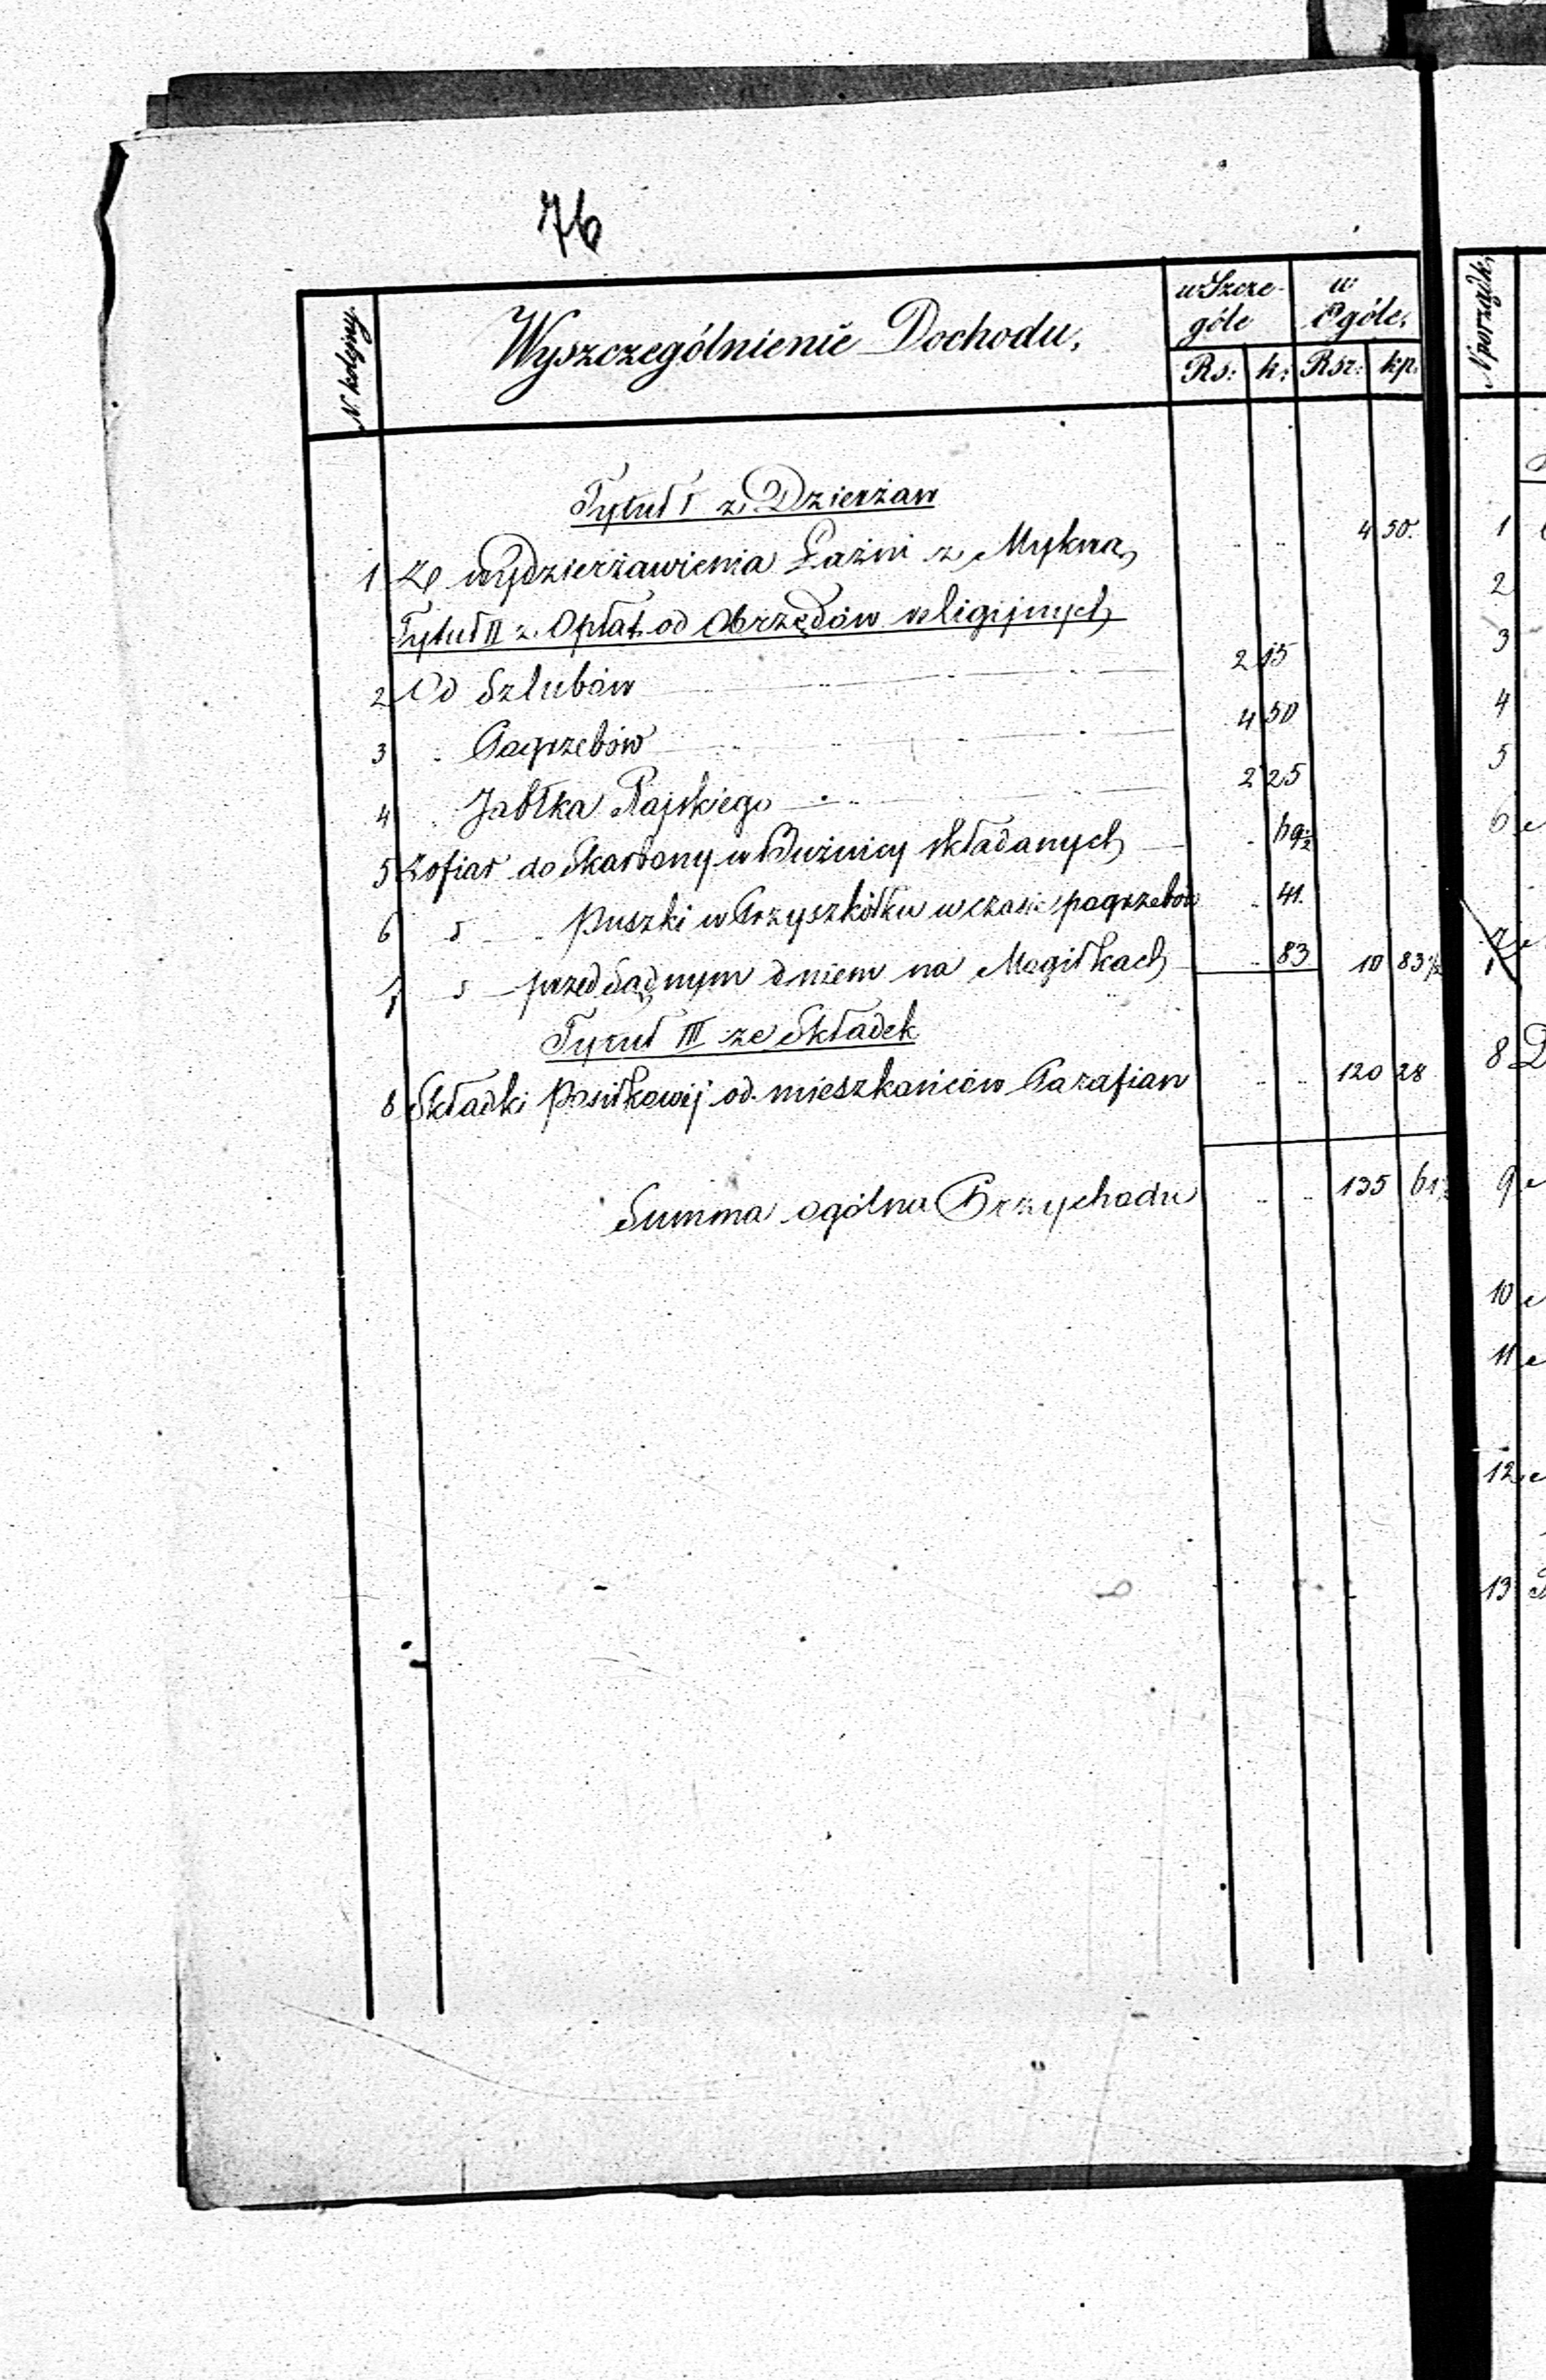 76
N. kolejny.
Wyszczególnienie Dochodu,
w Szcze- góle
w Ogóle,
Rs: k: Rsr: kp.
Tytuł I z Dzierżaw
1 Ze wydzierżawienia Łaźni z Mykwą 4 50.
Tytuł II z Opłat od Obrzędów religijnych
2 Od Szlubów 2 15
3 " Pogrzebów 4 50
4 " Jabłka Rajskiego 2 25
5 Z ofiar do Skarbony w Bużnicy składanych
6 " puszki w Przyszkółku w czasie pogrzebów 41.
7 " przed Sądnym dniem na Mogiłkach 83 10 83½
Tytuł III ze Składek
8 Składki Posiłkowej od mieszkańców Parafian 120 28
Summa ogólna Przychodu 135 61½
N porządk.
1
2
3
4
5
6
8
9
10
11
12
13